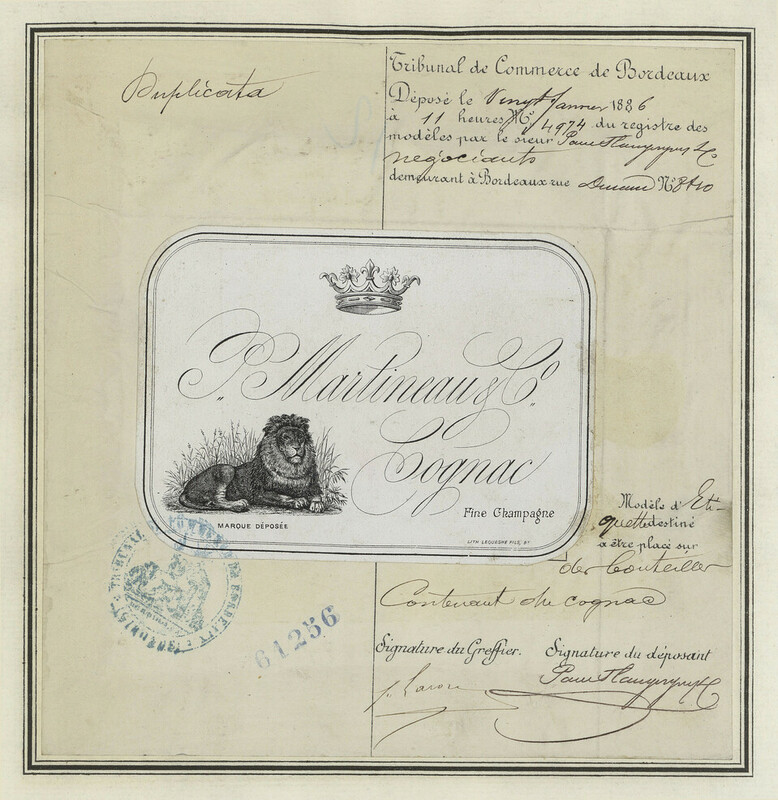 Duplicata
Tribunal de Commerce de Bordeaux
Déposé le Vingt Janvier 1886
à 11 heures N° 4974 du registre des
modèles par le sieur Paul
négociants
demeurant à Bordeaux rue N° 8 & 10
P. Martineau & Co.
Cognac
Fine Champagne
MARQUE DÉPOSÉE
LITH. LEQUESNE FILS, BX
Modèle d'Eti-
quette destiné
a être placé sur
des bouteilles
Contenant du cognac
TRIBUNAL DE COMMERCE DE BORDEAUX
61256
Signature du Greffier. Signature du déposant
Paul